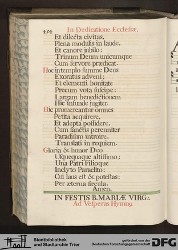 In Dedicatione Ecclesiæ.
Et dilecta civitas,
Plena modulis in laude,
Et canore jubilo:
Trinum Deum unicumque
Cum fervore prædicat.
Hoc in templo summe Deus
Exoratus adveni;
Et clementi bonitate
Precum vota suscipe:
Largam benedictionem
Hic infunde jugiter.
Hic promereantur omnes
Petita acquirere,
Et adepta possidere
Cum sanctis perenniter
Paradisum introire,
Translati in requiem.
Gloria & honor Deo
Usquequaque altissimo:
Una Patri Filioque
Inclyto Paraclito:
Cui laus est & potestas
Per æterna sæcula.
Amen.
IN FESTIS B. MARIÆ VIRG.
Ad Vesperas Hymnus.
Stadtbibliothek
und Stadtarchiv Trier
gefördert von
DFG Deutsche
Forschungsgemeinschaft